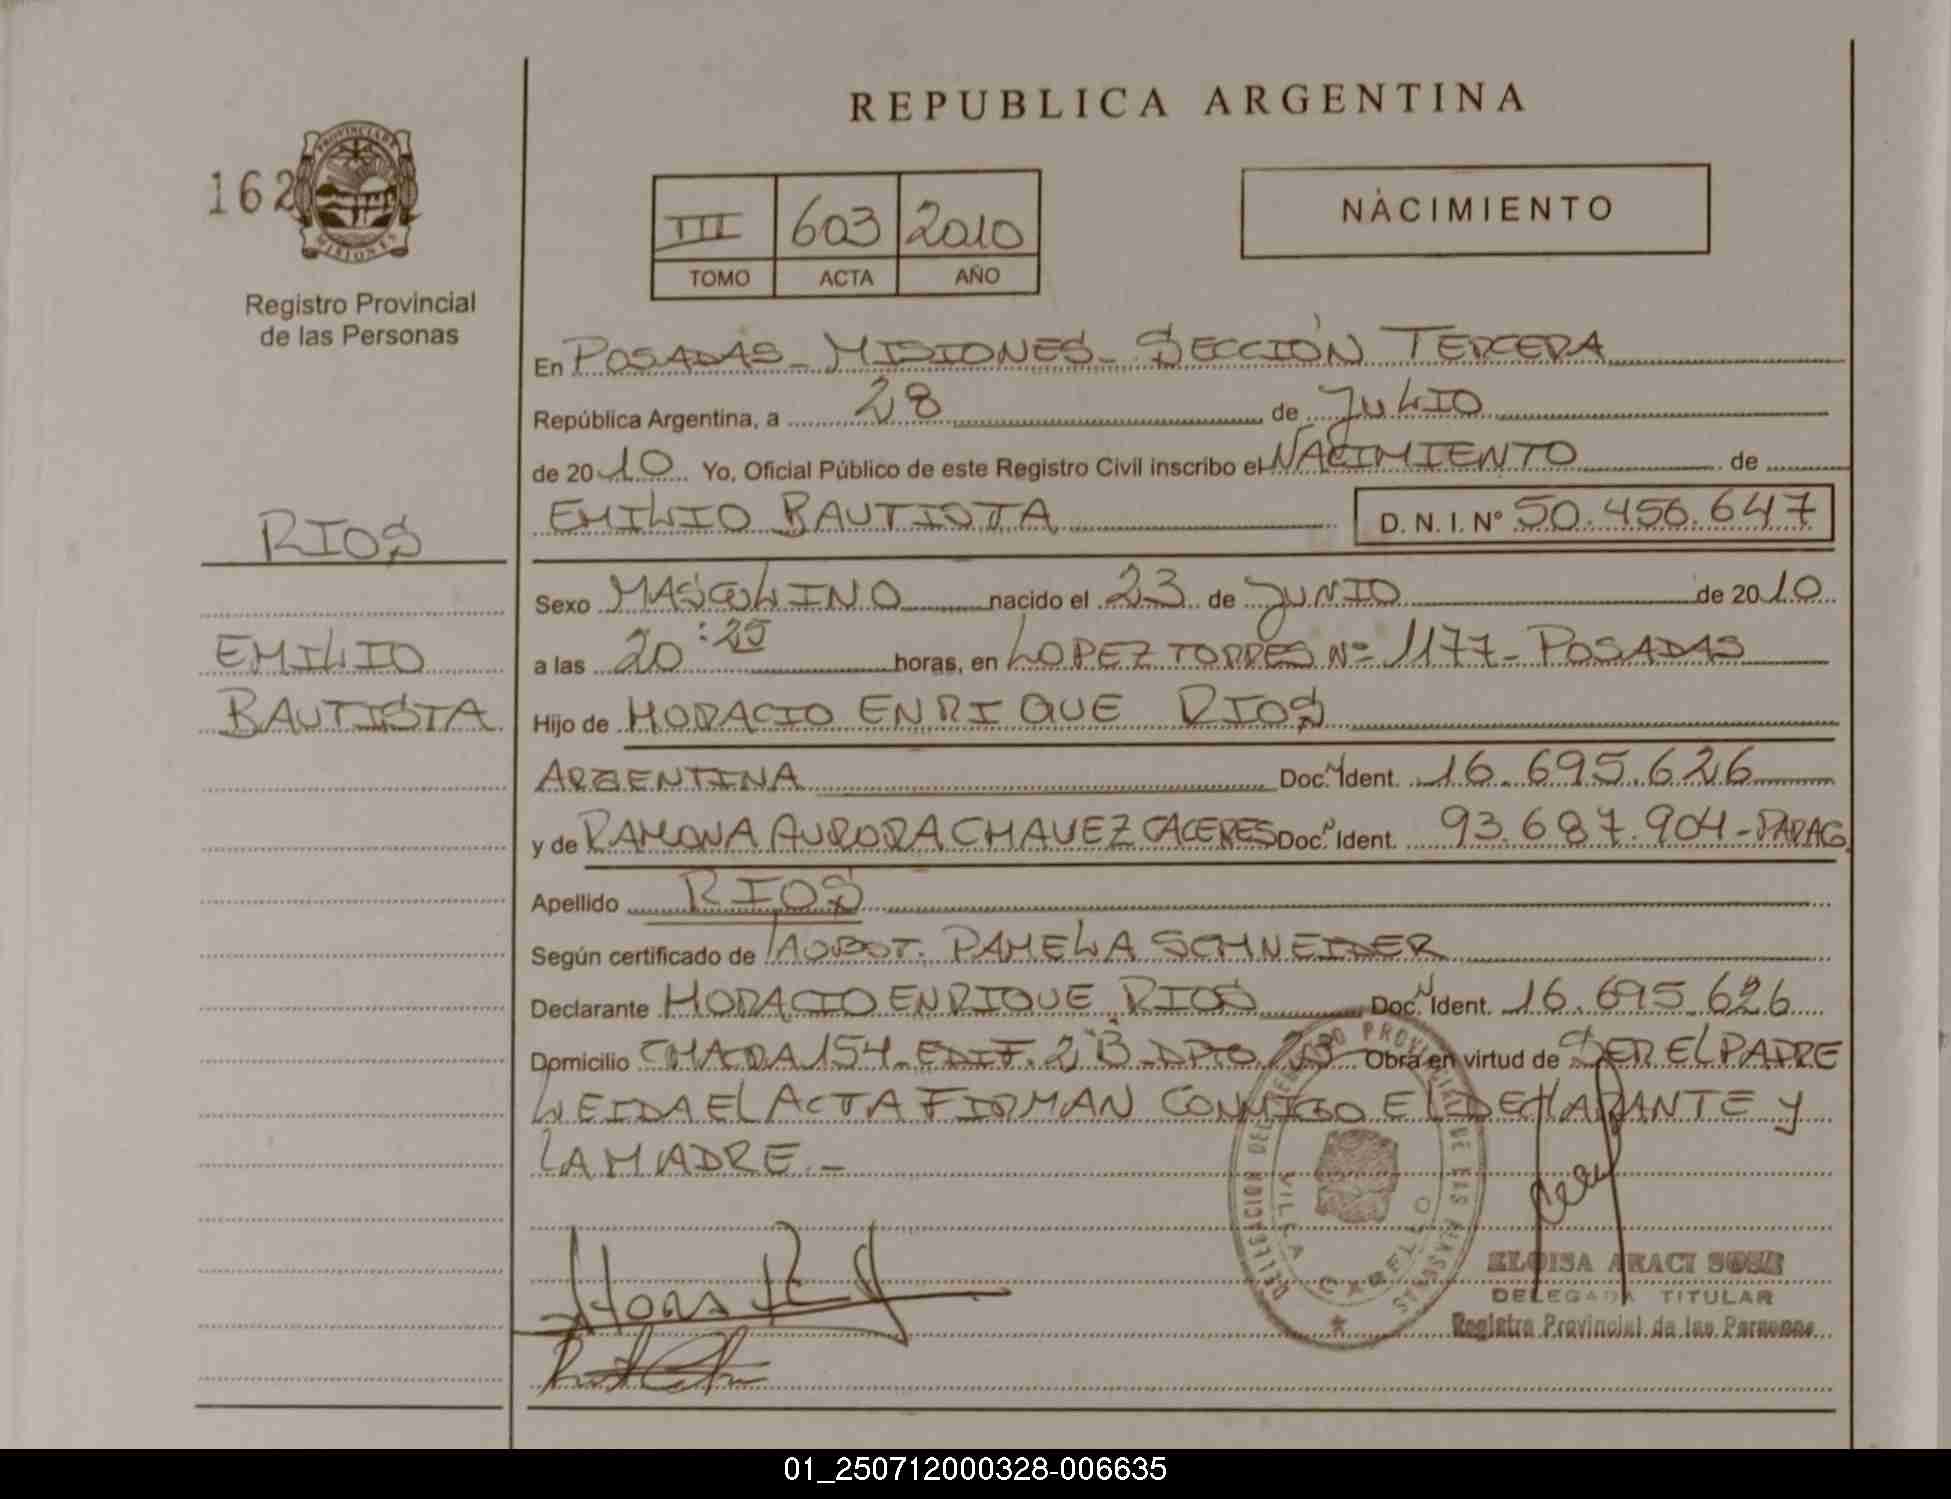 REPUBLICA ARGENTINA
162
PROVINCIA DE
MISIONES
Registro Provincial
de las Personas
III 603 2010
TOMO ACTA AÑO
NACIMIENTO
En POSADAS - MISIONES - SECCIÓN TERCERA
República Argentina, a 28 de JULIO
de 2010 Yo, Oficial Público de este Registro Civil inscribo el NACIMIENTO de
EMILIO BAUTISTA D. N. I. Nº 50.456.647
RIOS
EMILIO
BAUTISTA
Sexo MASCULINO nacido el 23 de JUNIO de 2010
a las 20:25 horas, en LOPEZ TORRES Nº 1177 - POSADAS
Hijo de HORACIO ENRIQUE RIOS
ARGENTINA Doc. Ident. 16.695.626
y de RAMONA AURORA CHAVEZ CACERES Doc. Ident. 93.687.904 - PARAG.
Apellido RIOS
Según certificado de PAMELA SCHNEIDER
Declarante HORACIO ENRIQUE RIOS Doc. Ident. 16.695.626
Domicilio CHACRA 154 - EDIF. 2 B - DPTO. 23 Obra en virtud de SER EL PADRE
LEIDA EL ACTA FIRMAN CONMIGO EL DECLARANTE Y
LA MADRE. -
DELEGACION DEL REGISTRO PROVINCIAL DE LAS PERSONAS
VILLA CABELLO
ELOISA ARACI SOSA
DELEGADA TITULAR
Registro Provincial de las Personas
01_250712000328-006635